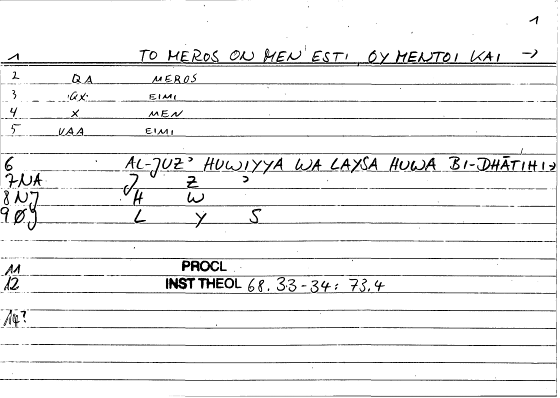 1
1 TO MEROS ON MEN ESTI, OY MENTOI KAI →
2 QA MEROS
3 GX EIMI
4 X MEN
5 VAA EIMI
6 AL-JUZʾ HUWIYYA WA LAYSA HUWA BI-DHĀTIHI→
7 NA J Z ʾ
8 NJ H W
9 ØJ L Y S
11 PROCL
12 INST THEOL 68.33-34: 73.4
14?